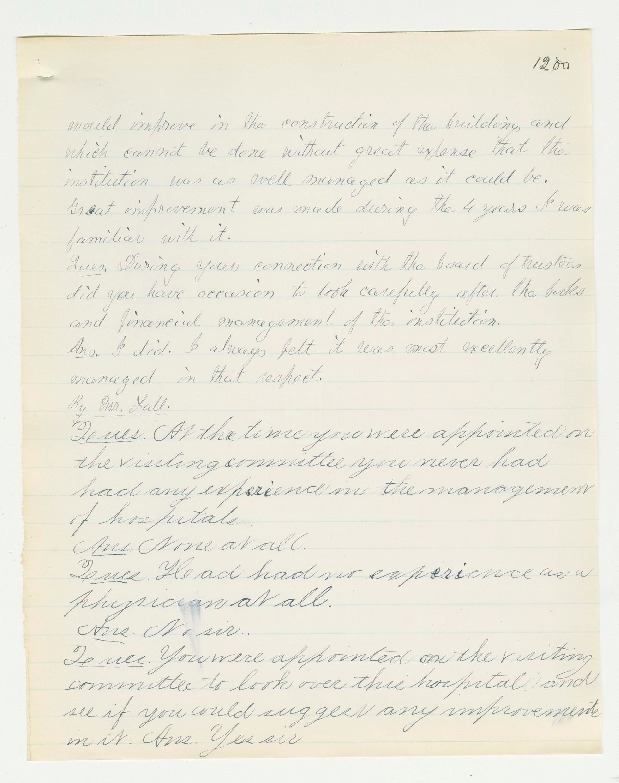 1200
would improve in the construction of the building and
which cannot be done without great expense that the
institution was as well managed as it could be.
Great improvement was made during the 4 years I was
familiar with it.
Ques. During your connection with the board of trustees
did you have occasion to look carefully after the books
and financial management of the institution.
Ans. I did. I always felt it was most excellently
managed in that respect.
By Mr.
Ques. At the time you were appointed on
the visiting committee you never had
had any experience in the management
of hospitals
Ans None at all.
Ques. Had had no experience as a
physician at all.
Ans. No sir.
Ques. You were appointed on the visiting
committee to look over this hospital and
see if you could suggest any improvements
in it. Ans. Yes sir